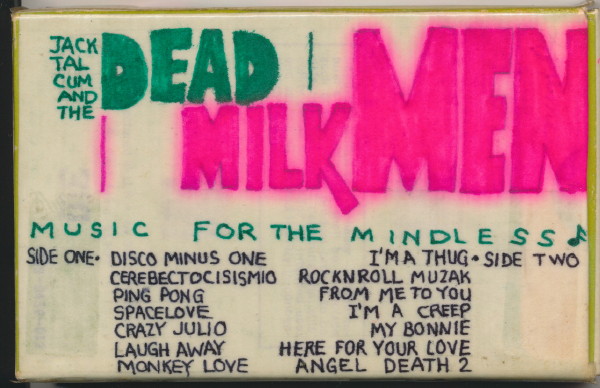 JACK
TAL
CUM
AND
THE
DEAD
MILK MEN
MUSIC FOR THE MINDLESS
SIDE ONE• DISCO MINUS ONE
CEREBECTOCISISMIO
PING PONG
SPACELOVE
CRAZY JULIO
LAUGH AWAY
MONKEY LOVE
I'M A THUG • SIDE TWO
ROCKNROLL MUZAK
FROM ME TO YOU
I'M A CREEP
MY BONNIE
HERE FOR YOUR LOVE
ANGEL DEATH 2